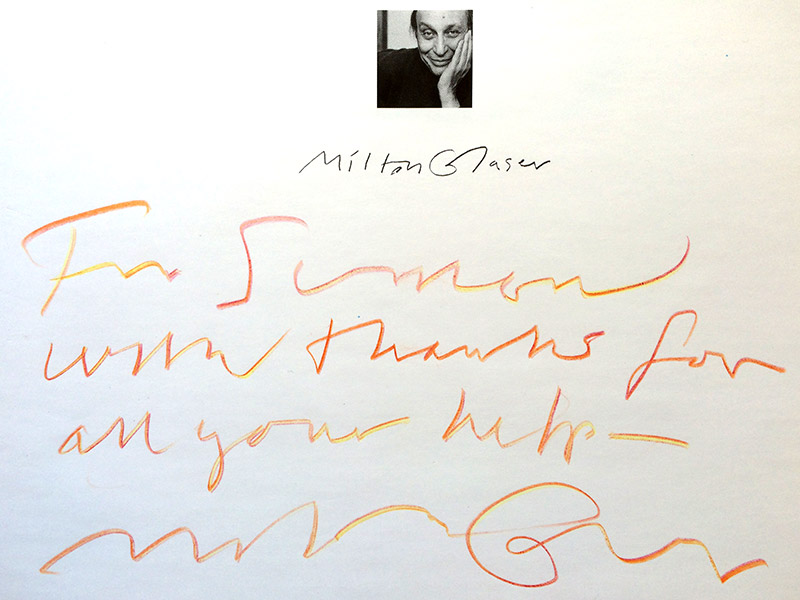 Milton Glaser
For Simon
with thanks for
all your help—
Milton Glaser